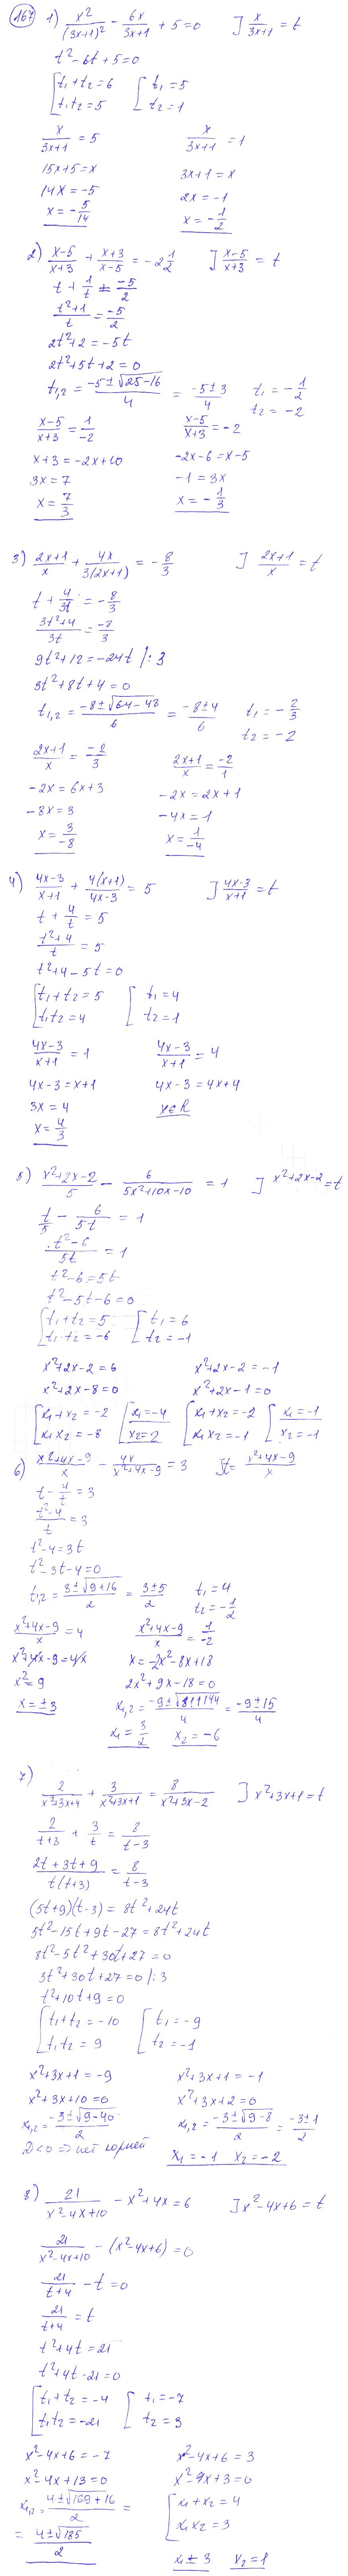 167
1) x²/(3x+1)² - 6x/(3x+1) + 5 = 0   ] x/(3x+1) = t
t² - 6t + 5 = 0
[ t₁ + t₂ = 6   [ t₁ = 5
t₁t₂ = 5   t₂ = 1
x/(3x+1) = 5   x/(3x+1) = 1
15x + 5 = x   3x + 1 = x
14x = -5   2x = -1
x = -5/14   x = -1/2
2) (x-5)/(x+3) + (x+3)/(x-5) = -2 1/2   ] (x-5)/(x+3) = t
t + 1/t = -5/2
(t²+1)/t = -5/2
2t² + 2 = -5t
2t² + 5t + 2 = 0
t₁,₂ = (-5 ± √(25-16))/4 = (-5 ± 3)/4   t₁ = -1/2
t₂ = -2
(x-5)/(x+3) = 1/-2   (x-5)/(x+3) = -2
x + 3 = -2x + 10   -2x - 6 = x - 5
3x = 7   -1 = 3x
x = 7/3   x = -1/3
3) (2x+1)/x + 4x/(3(2x+1)) = -8/3   ] (2x+1)/x = t
t + 4/3t = -8/3
(3t²+4)/3t = -8/3
9t² + 12 = -24t /: 3
3t² + 8t + 4 = 0
t₁,₂ = (-8 ± √(64-48))/6 = (-8 ± 4)/6   t₁ = -2/3
t₂ = -2
(2x+1)/x = -2/3   (2x+1)/x = -2/1
-2x = 6x + 3   -2x = 2x + 1
-8x = 3   -4x = 1
x = 3/-8   x = 1/-4
4) (4x-3)/(x+1) + 4(x+1)/(4x-3) = 5   ] (4x-3)/(x+1) = t
t + 4/t = 5
(t²+4)/t = 5
t² + 4 - 5t = 0
[ t₁ + t₂ = 5   [ t₁ = 4
t₁t₂ = 4   t₂ = 1
(4x-3)/(x+1) = 1   (4x-3)/(x+1) = 4
4x - 3 = x + 1   4x - 3 = 4x + 4
3x = 4   x∈R
x = 4/3
5) (x²+2x-2)/5 - 6/(5x²+10x-10) = 1   ] x²+2x-2 = t
t/5 - 6/5t = 1
(t²-6)/5t = 1
t² - 6 = 5t
t² - 5t - 6 = 0
[ t₁ + t₂ = 5   [ t₁ = 6
t₁ · t₂ = -6   t₂ = -1
x² + 2x - 2 = 6   x² + 2x - 2 = -1
x² + 2x - 8 = 0   x² + 2x - 1 = 0
[ x₁ + x₂ = -2   [ x₁ = -4   [ x₁ + x₂ = -2   [ x₁ = -1
x₁x₂ = -8   x₂ = 2   x₁x₂ = -1   x₂ = -1
6) (x²+4x-9)/x - 4x/(x²+4x-9) = 3   ] t = (x²+4x-9)/x
t - 4/t = 3
(t²-4)/t = 3
t² - 4 = 3t
t² - 3t - 4 = 0
t₁,₂ = (3 ± √(9+16))/2 = (3 ± 5)/2   t₁ = 4
t₂ = -1/2
(x²+4x-9)/x = 4   (x²+4x-9)/x = 1/-2
x² + 4x - 9 = 4x   x = -2x² - 8x + 18
x² = 9   2x² + 9x - 18 = 0
x = ±3   x₁,₂ = (-9 ± √(81+144))/4 = (-9 ± 15)/4
x₁ = 3/2   x₂ = -6
7) 2/(x²+3x+4) + 3/(x²+3x+1) = 8/(x²+3x-2)   ] x²+3x+1 = t
2/(t+3) + 3/t = 8/(t-3)
(2t+3t+9)/(t(t+3)) = 8/(t-3)
(5t+9)(t-3) = 8t² + 24t
5t² - 15t + 9t - 27 = 8t² + 24t
8t² - 5t² + 30t + 27 = 0
3t² + 30t + 27 = 0 /: 3
t² + 10t + 9 = 0
[ t₁ + t₂ = -10   [ t₁ = -9
t₁t₂ = 9   t₂ = -1
x² + 3x + 1 = -9   x² + 3x + 1 = -1
x² + 3x + 10 = 0   x² + 3x + 2 = 0
x₁,₂ = (-3 ± √(9-40))/2   x₁,₂ = (-3 ± √(9-8))/2 = (-3 ± 1)/2
D<0 => нет корней   x₁ = -1   x₂ = -2
8) 21/(x²-4x+10) - x² + 4x = 6   ] x²-4x+6 = t
21/(x²-4x+10) - (x²-4x+6) = 0
21/(t+4) - t = 0
21/(t+4) = t
t² + 4t = 21
t² + 4t - 21 = 0
[ t₁ + t₂ = -4   [ t₁ = -7
t₁t₂ = -21   t₂ = 3
x² - 4x + 6 = -7   x² - 4x + 6 = 3
x² - 4x + 13 = 0   x² - 4x + 3 = 0
x₁,₂ = (4 ± √(169+16))/2 =   [ x₁ + x₂ = 4
= (4 ± √185)/2   x₁x₂ = 3
x₁ = 3   x₂ = 1